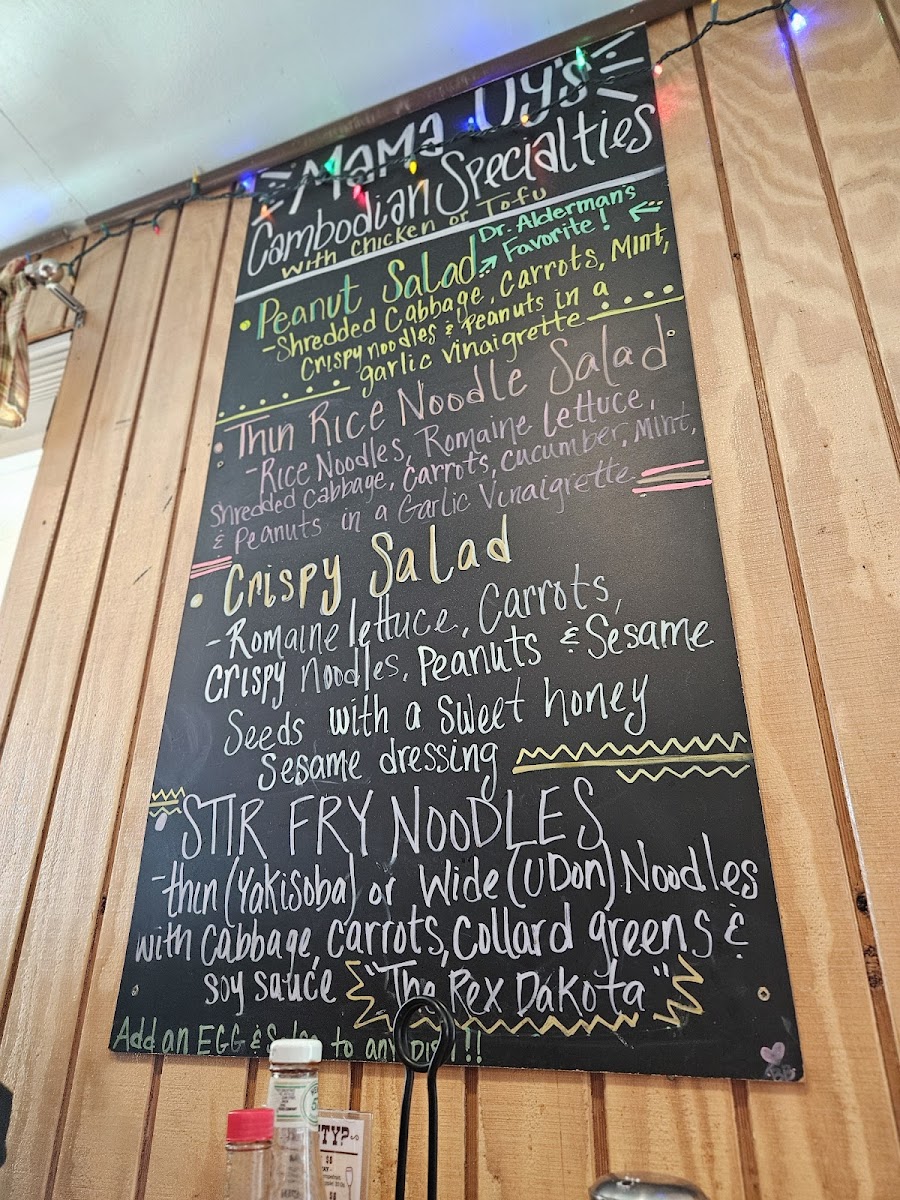 Mama Uy's
Cambodian Specialties
with chicken or Tofu
• Peanut Salad
Dr. Alderman's
Favorite!
-Shredded Cabbage, Carrots, Mint,
Crispy noodles & Peanuts in a
garlic vinaigrette
• Thin Rice Noodle Salad
-Rice Noodles, Romaine lettuce,
shredded cabbage, carrots, cucumber, mint,
& Peanuts in a Garlic Vinaigrette
• Crispy Salad
-Romaine lettuce, Carrots,
crispy noodles, Peanuts & Sesame
Seeds with a sweet honey
Sesame dressing
• STIR FRY NOODLES
-thin (Yakisoba) or Wide (UDon) Noodles
with cabbage, carrots, collard greens &
soy sauce "The Rex Dakota"
Add an EGG & to any DISH!!